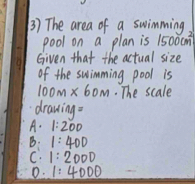 3) The area of a swimming
pool on a plan is 1500cm²
Given that the actual size
of the swimming pool is
100m x 60m. The scale
drawing =
A. 1:200
B. 1:400
C. 1:2000
D. 1:4000